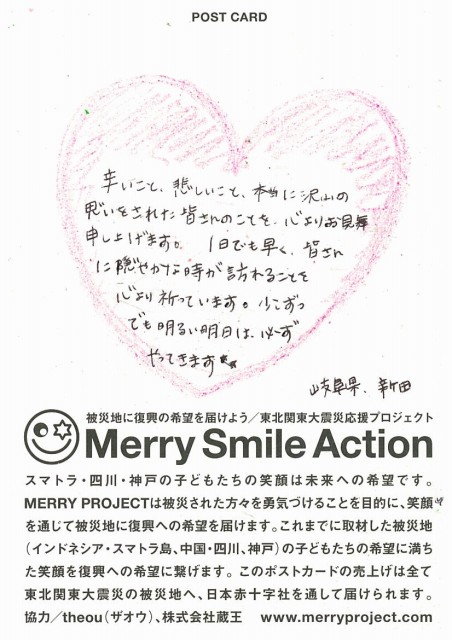 POST CARD
辛いこと、悲しいこと、本当に沢山の
思いをされた皆さんのことを、心よりお見舞
申し上げます。 1日でも早く、皆さん
に隠やかな時が訪れることを
心より祈っています。少しずつ
でも明るい明日は、必ず
やってきます★★
岐阜県、新田
被災地に復興の希望を届けよう／東北関東大震災応援プロジェクト
Merry Smile Action
スマトラ・四川・神戸の子どもたちの笑顔は未来への希望です。
MERRY PROJECTは被災された方々を勇気づけることを目的に、笑顔
を通じて被災地に復興への希望を届けます。これまでに取材した被災地
（インドネシア・スマトラ島、中国・四川、神戸）の子どもたちの希望に満ち
た笑顔を復興への希望に繋げます。このポストカードの売上げは全て
東北関東大震災の被災地へ、日本赤十字社を通して届けられます。
協力／theou（ザオウ）、株式会社蔵王 www.merryproject.com